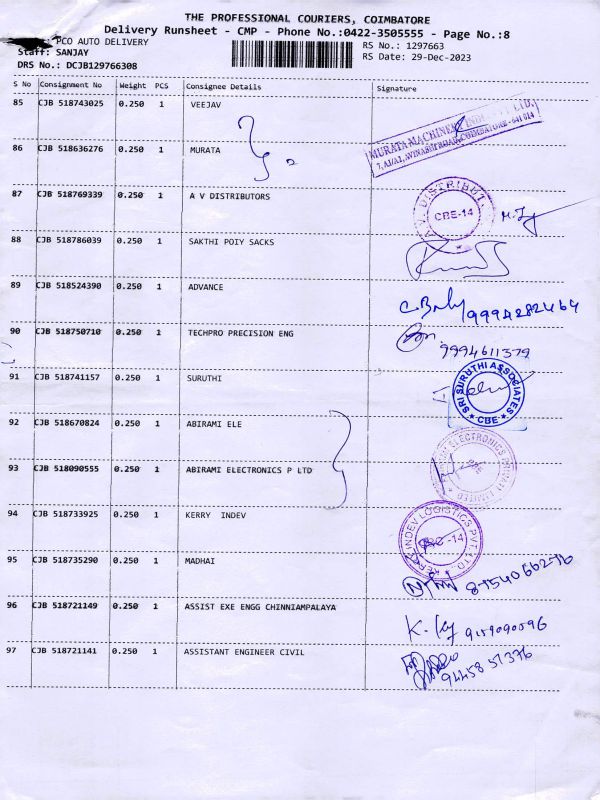 THE PROFESSIONAL COURIERS, COIMBATORE
Delivery Runsheet - CMP - Phone No.:0422-3505555 - Page No.:8
: PCO AUTO DELIVERY
Staff: SANJAY
DRS No.: DCJB129766308
RS No.: 1297663
RS Date: 29-Dec-2023
S No Consignment No Weight PCS Consignee Details Signature
85 CJB 518743025 0.250 1 VEEJAV
MURATA MACHINE LTD.
COIMBATORE - 641 014
86 CJB 518636276 0.250 1 MURATA
87 CJB 518769339 0.250 1 A V DISTRIBUTORS
A.V. DISTRIBUT
CBE-14
88 CJB 518786039 0.250 1 SAKTHI POIY SACKS
89 CJB 518524390 0.250 1 ADVANCE
9994282464
90 CJB 518750710 0.250 1 TECHPRO PRECISION ENG
9994611379
91 CJB 518741157 0.250 1 SURUTHI
SRI SURUTHI ASSOCIATES
* CBE *
92 CJB 518670824 0.250 1 ABIRAMI ELE
93 CJB 518090555 0.250 1 ABIRAMI ELECTRONICS P LTD
ELECTRONICS PRIVATE LIMITED
94 CJB 518733925 0.250 1 KERRY INDEV
KERRY INDEV LOGISTICS PVT. LTD.
CBE-14
95 CJB 518735290 0.250 1 MADHAI
8754066276
96 CJB 518721149 0.250 1 ASSIST EXE ENGG CHINNIAMPALAYA
9159090596
97 CJB 518721141 0.250 1 ASSISTANT ENGINEER CIVIL
9445851376